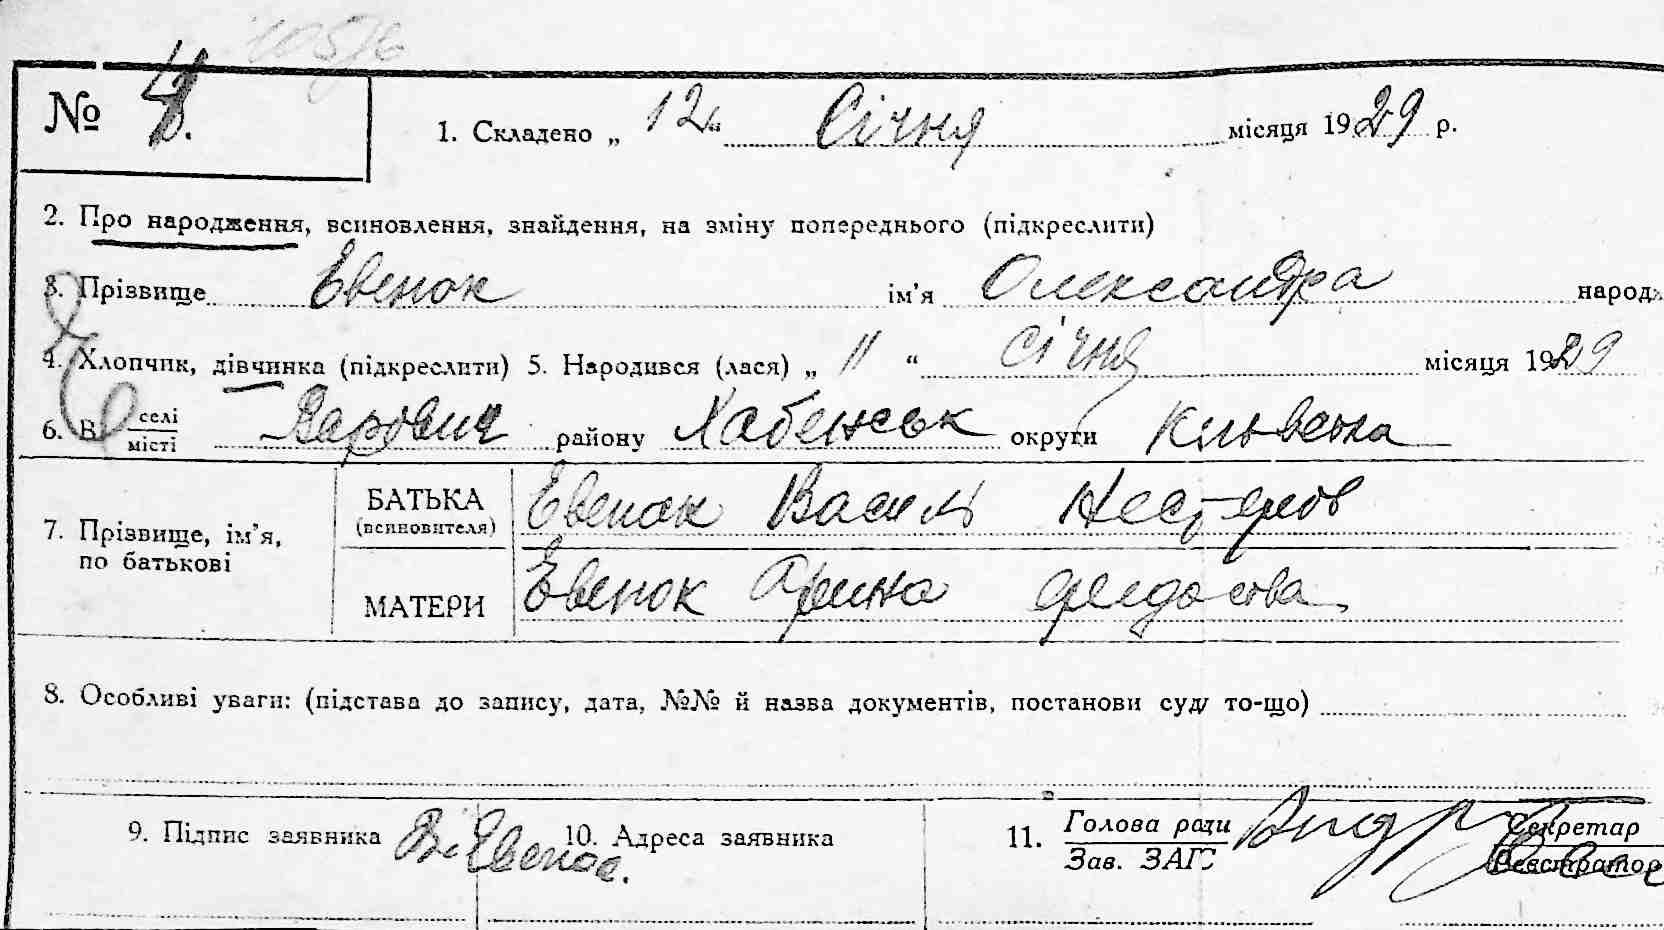 № 4.
1. Складено „ 12 „ Січня місяця 1929 р.
2. Про народження, всиновлення, знайдення, на зміну попереднього (підкреслити)
3. Прізвище Евенок ім'я Олександра народ
4. Хлопчик, дівчинка (підкреслити) 5. Народився (лася) „ 11 “ Січня місяця 1929
6. В селі
місті Варовичі району Хабенськ округи Київська
7. Прізвище, ім'я,
по батькові
БАТЬКА
(всиновителя)
Евенок Василь Нестеров
МАТЕРИ
Евенок Орина Федосова
8. Особливі уваги: (підстава до запису, дата, №№ й назва документів, постанови суду то-що)
9. Підпис заявника В. Евенок.
10. Адреса заявника
11. Голова ради
Зав. ЗАГС
Секретар
Реєстратор